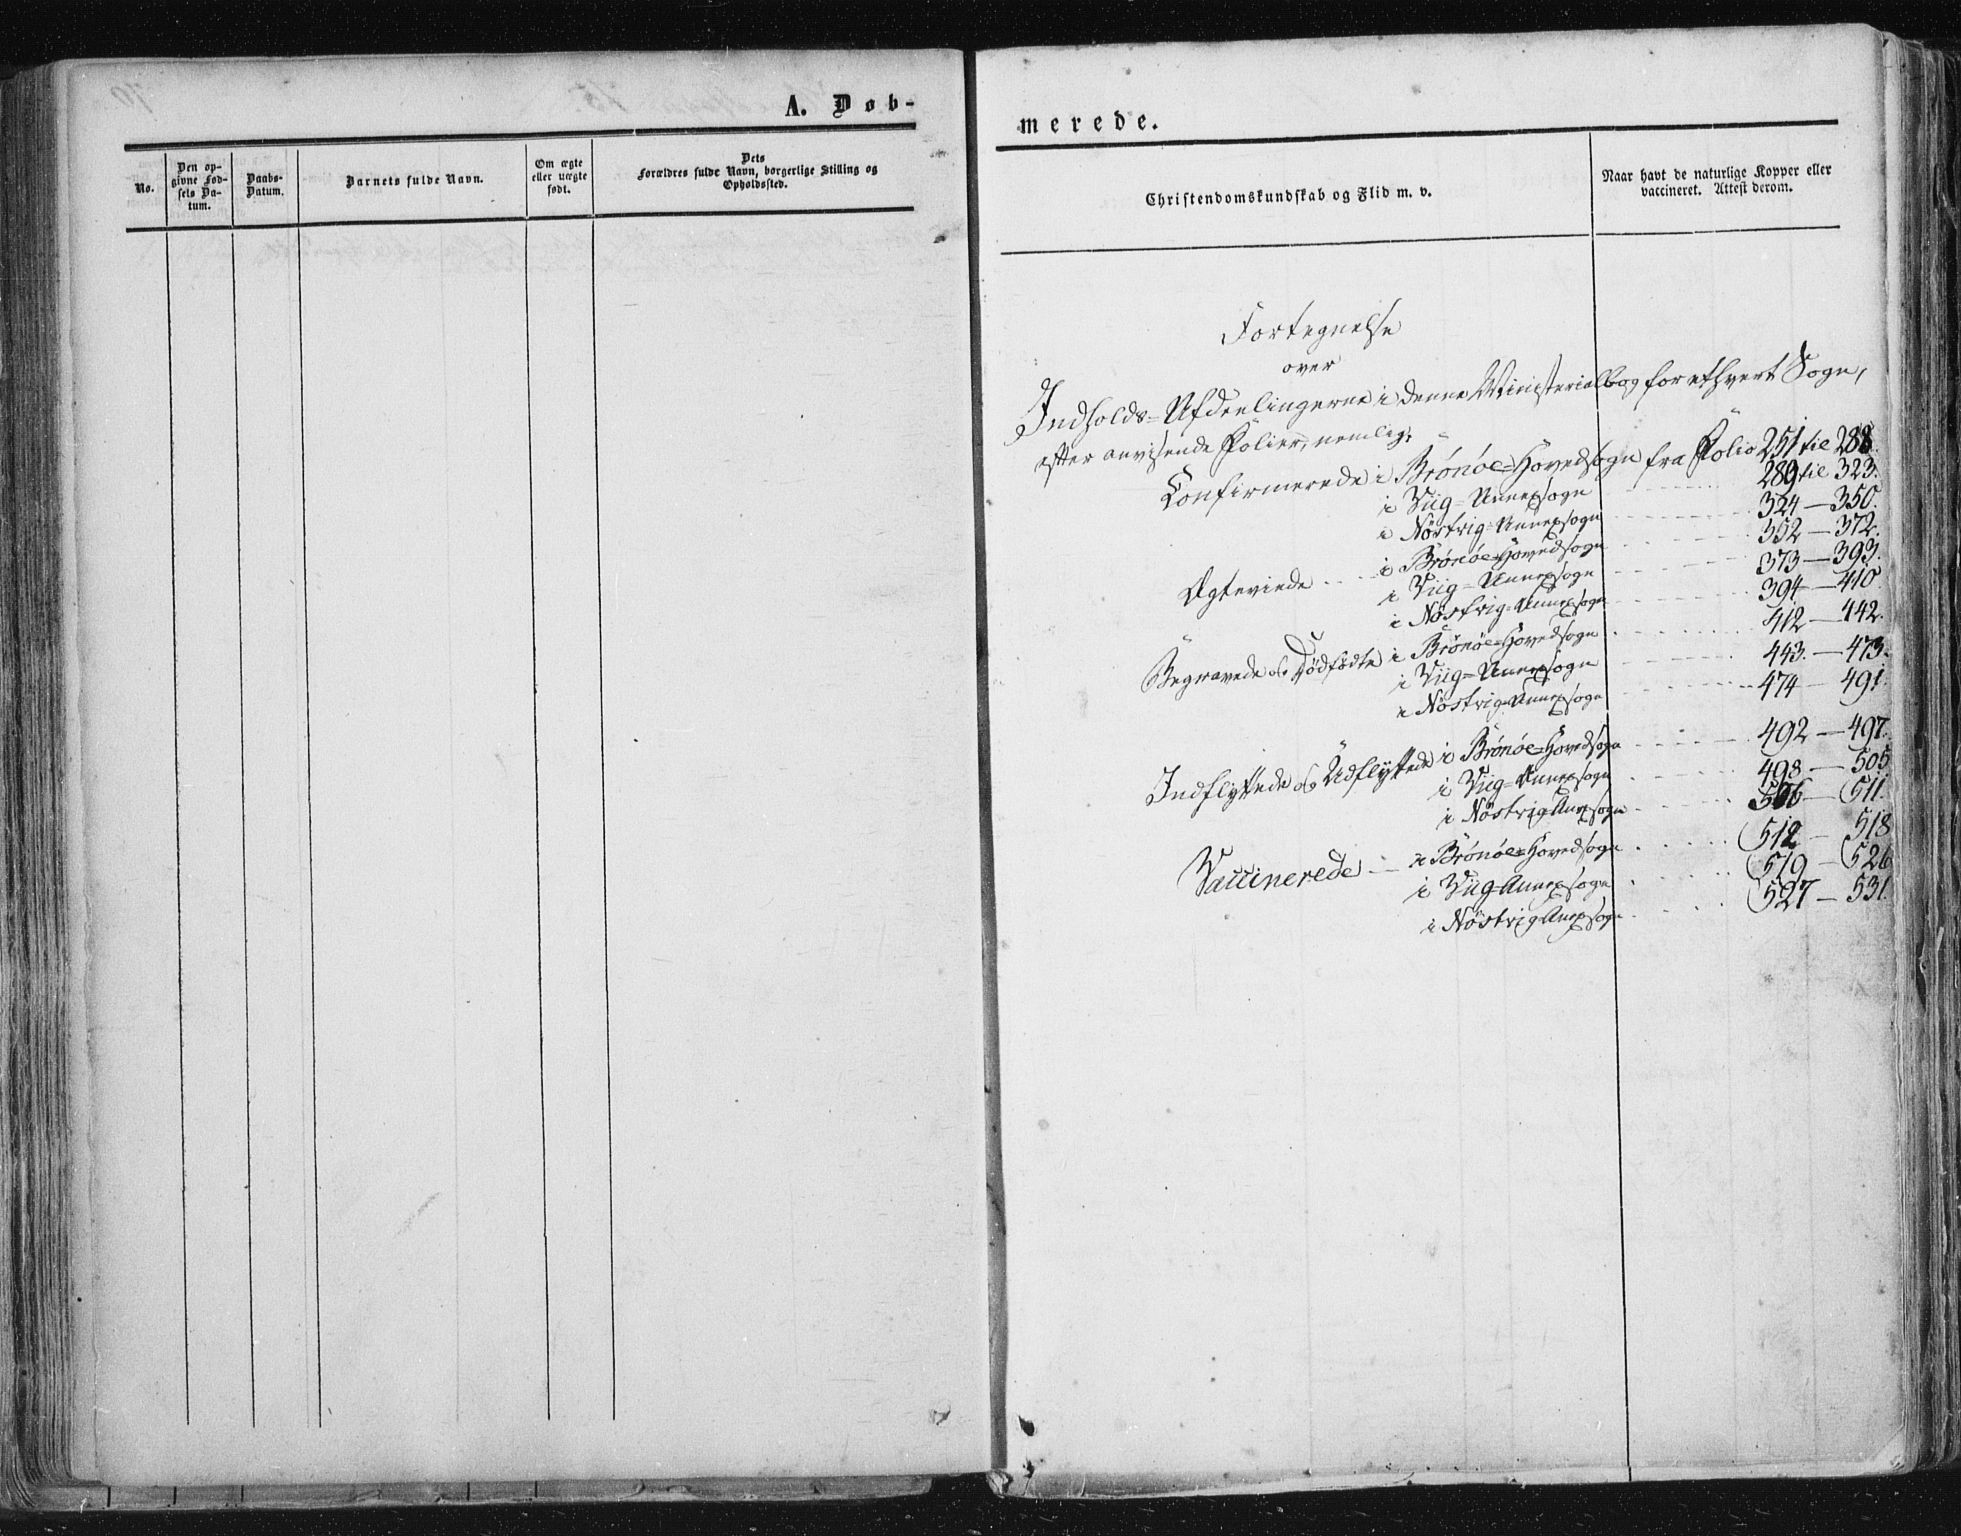 A. Døb-
No.
Den op-
givne Fød-
sels Da-
tum.
Daabs-
Datum.
Barnets fulde Navn.
Om ægte
eller uægte
født.
Dets
Forældres fulde Navn, borgerlige Stilling og
Opholdssted.
merede.
Christendomskundskab og Flid m. v.
Naar havt de naturlige Kopper eller
vaccineret. Attest derom.
Fortegnelse
over
Indholds=Afdeelingerne i denne Ministerialbog for ethvert Sogn,
efter anvisende Folier, nemlig:
Confirmerede i Brönöe=Hovedsogn fra Folio 251 til 288.
i Viig=Annexsogn 289 til 323.
i Nöstvig=Annexsogn 324 — 350.
Ægteviede i Brönöe=Hovedsogn 352 — 372.
i Viig=Annexsogn 373 — 393.
i Nöstvig=Annexsogn 394 — 410
Begravede og Dödfödte i Brönöe=Hovedsogn 412 — 442.
i Viig=Annexsogn 443. — 473.
i Nöstvig=Annexsogn 474 — 491.
Indflyttede og Udflyttede i Brönöe=Hovedsogn 492 — 497.
i Viig=Annexsogn 498 — 505
i Nöstvig=Anexsogn 506 — 511.
Vaccinerede — i Brönöe=Hovedsogn 512 — 518
i Viig=Annexsogn 519 — 526
i Nöstvig=Anexsogn 527 — 531.